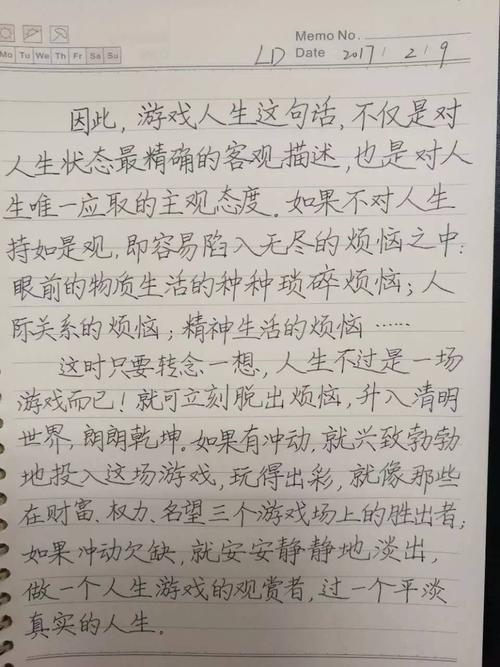 Memo No.
Mo Tu We Th Fr Sa Su
LD Date 2017 / 2 / 9
因此，游戏人生这句话，不仅是对
人生状态最精确的客观描述，也是对人
生唯一应取的主观态度。如果不对人生
持如是观，即容易陷入无尽的烦恼之中：
眼前的物质生活的种种琐碎烦恼；人
际关系的烦恼；精神生活的烦恼……
这时只要转念一想，人生不过是一场
游戏而已！就可立刻脱出烦恼，升入清明
世界，朗朗乾坤。如果有冲动，就兴致勃勃
地投入这场游戏，玩得出彩，就像那些
在财富、权力、名望三个游戏场上的胜出者；
如果冲动欠缺，就安安静静地淡出，
做一个人生游戏的观赏者，过一个平淡
真实的人生。